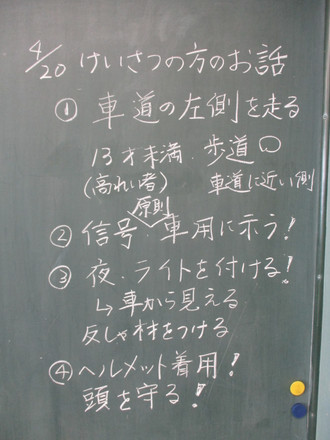 4/20 けいさつの方のお話
① 車道の左側を走る
13才未満・歩道○
(高れい者) 車道に近い側
原則
② 信号・車用に示う!
③ 夜・ライトを付ける!
↳車から見える
反しゃ材をつける
④ ヘルメット着用!
頭を守る!